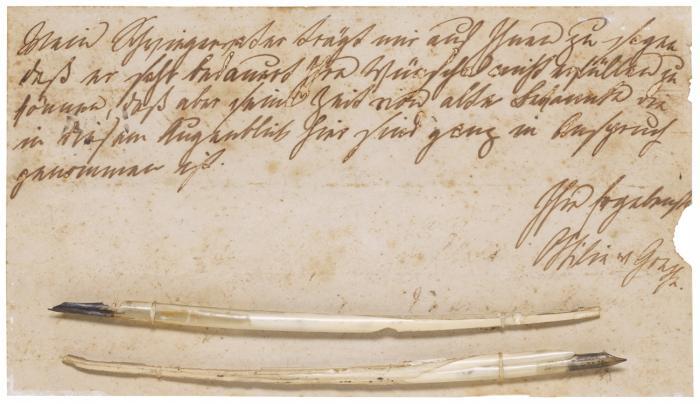 Mein Schwiegervater trägt mir auf Ihnen zu sagen
daß er sehr bedauert Ihre Wünsche nicht erfüllen zu
können, daß aber seine Zeit von alten Bekannten die
in diesem Augenblick hier sind ganz in Anspruch
genommen ist.
Ihre ergebenste
Ottilie v Goethe